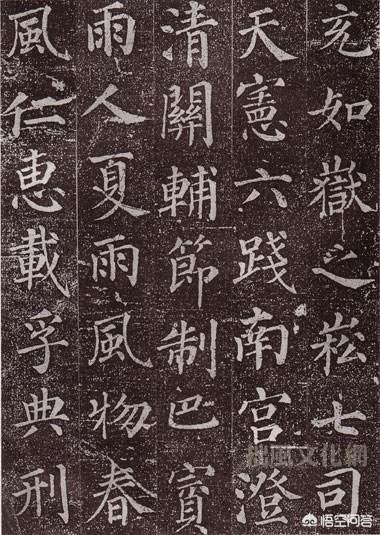 充如嶽之崧七司
天憲六踐南宮澄
清關輔節制巴賨
雨人夏雨風物春
風仁惠載孚典刑
風文化網
悟空问答